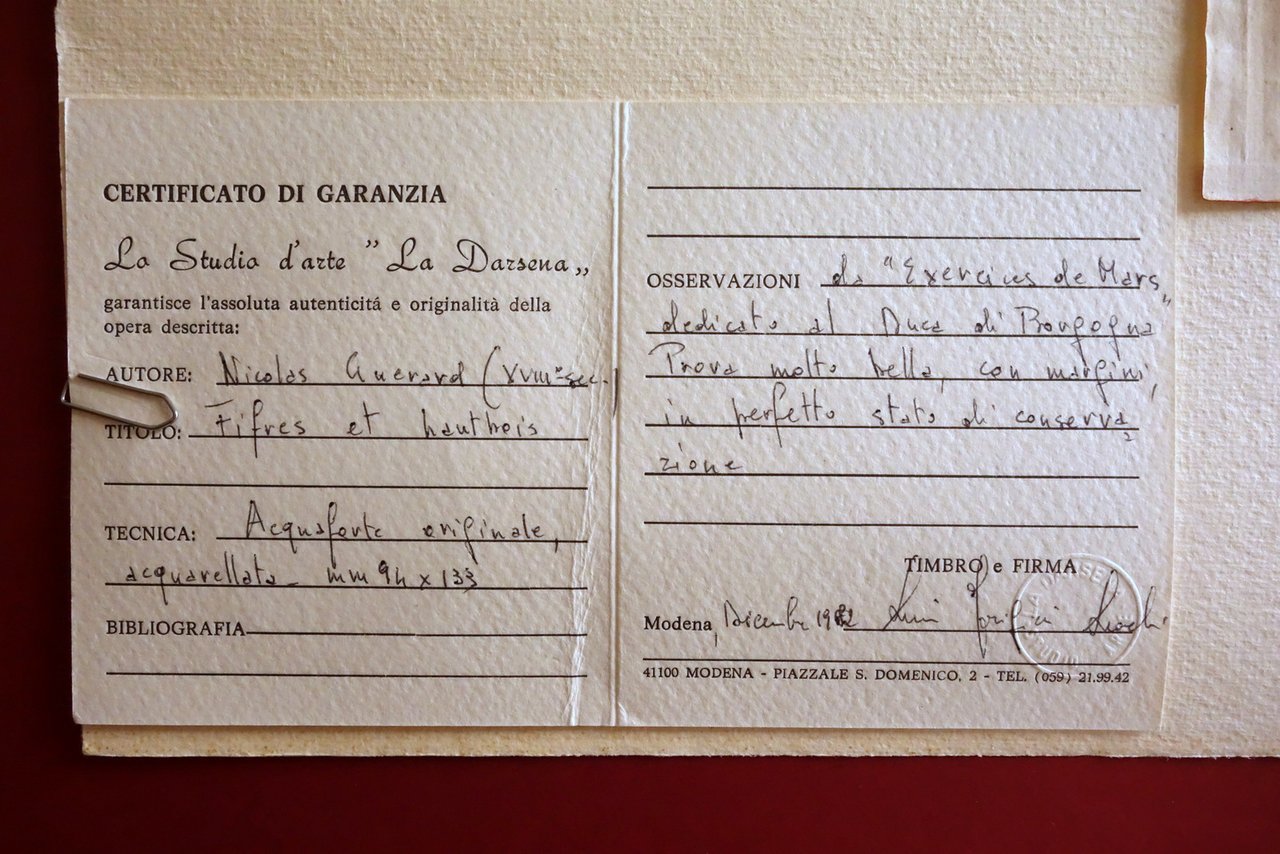 CERTIFICATO DI GARANZIA
Lo Studio d'arte "La Darsena„
garantisce l'assoluta autenticitá e originalità della
opera descritta:
AUTORE: Nicolas Guerard (XVIIIº sec.
TITOLO: Fifres et hautbois
TECNICA: Acquaforte originale,
acquarellata - mm 94 x 133
BIBLIOGRAFIA
OSSERVAZIONI da "Exercices de Mars„
dedicato al Duca di Borgogna
Prova molto bella, con margini,
in perfetto stato di conserva
zione
TIMBRO e FIRMA
Modena, Dicembre 1982
41100 MODENA - PIAZZALE S. DOMENICO, 2 - TEL. (059) 21.99.42